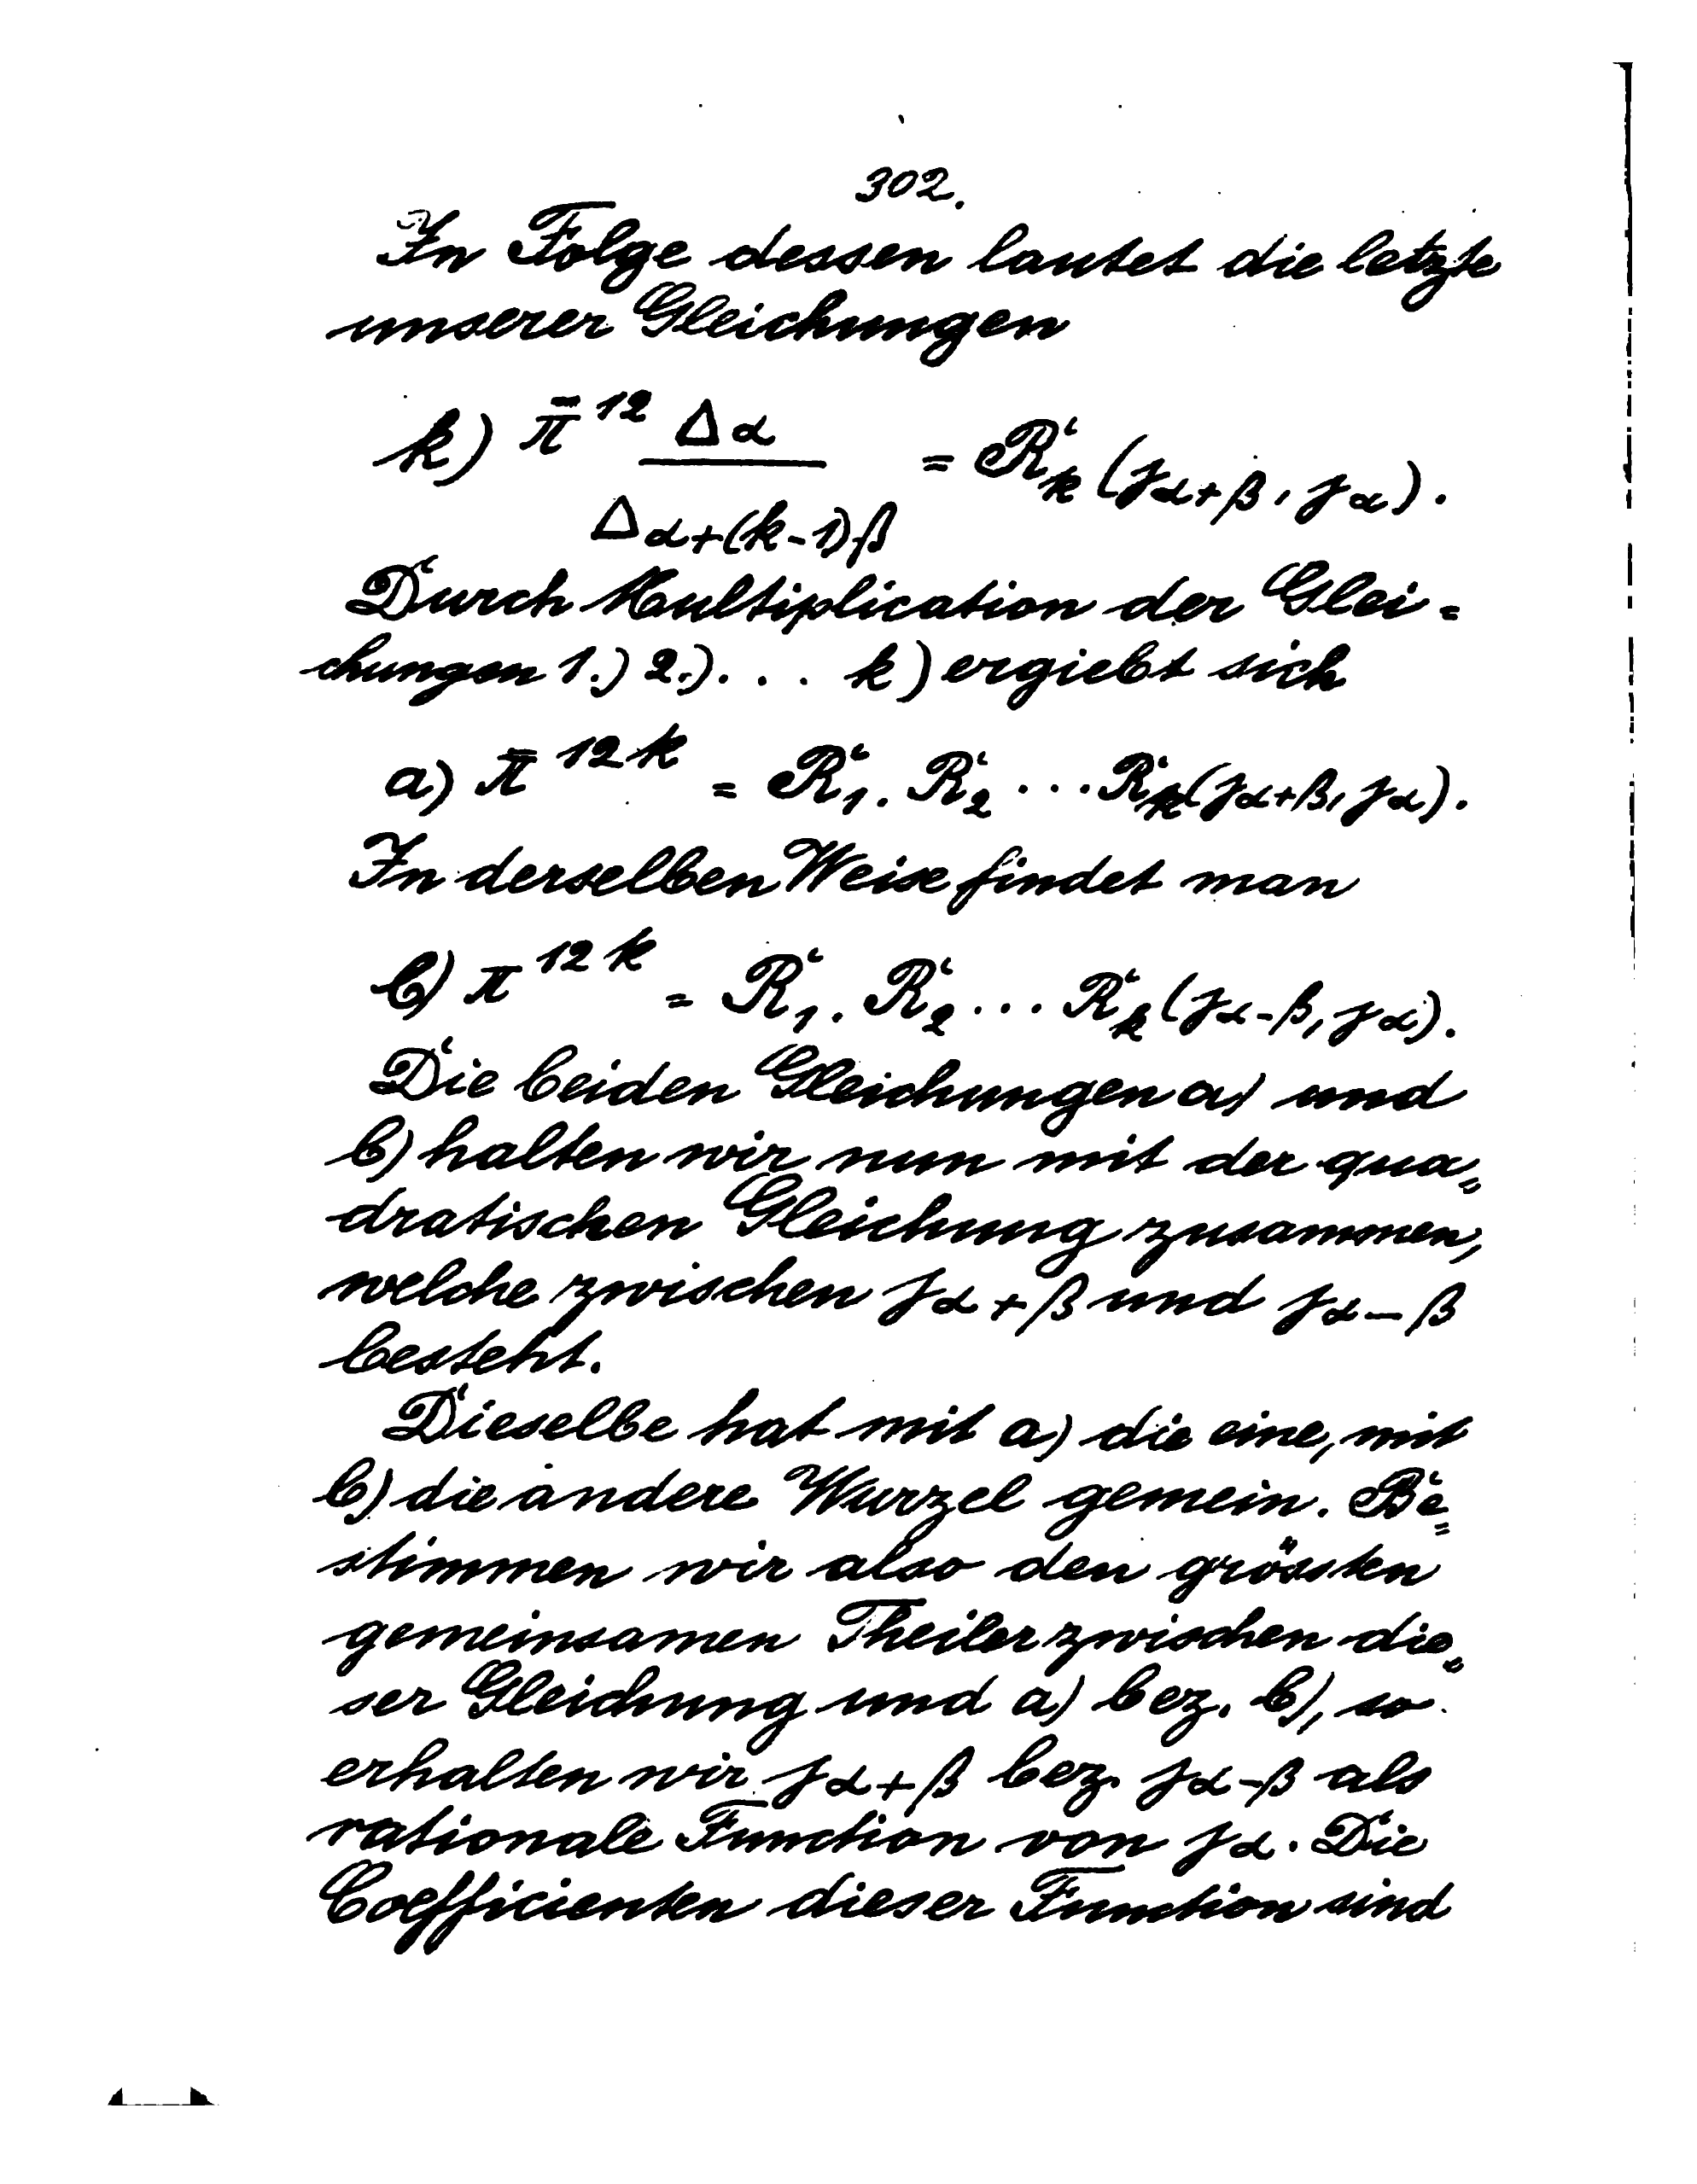 302.
In Folge dessen lautet die letzte
unserer Gleichungen
k) π̄^12 Δα / Δα+(k-1)β = R_k (jα+β, jα).
Durch Multiplication der Glei=
chungen 1.) 2.). . . k) ergiebt sich
a) π̄^12k = R_1. R_2 ... R_k(jα+β, jα).
In derselben Weise findet man
b) π^12k = R_1. R_2 ... R_k(jα-β, jα).
Die beiden Gleichungen a) und
b) halten wir nun mit der qua=
dratischen Gleichung zusammen,
welche zwischen jα+β und jα-β
besteht.
Dieselbe hat mit a) die eine, mit
b) die andere Wurzel gemein. Be=
stimmen wir also den grössten
gemeinsamen Theiler zwischen die=
ser Gleichung und a) bez. b), so
erhalten wir jα+β bez. jα-β als
rationale Function von jα. Die
Coefficienten dieser Function sind